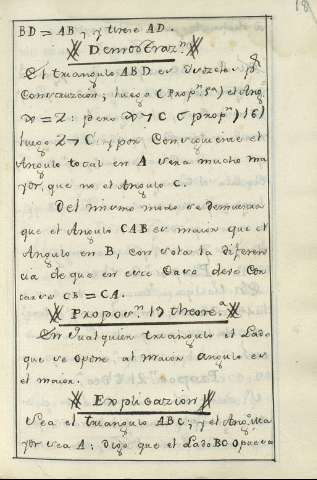 18
BD = AB, y tirese AD.
Demostraz.n
El triangulo ABD es Yzozeles p.r
Construczion; luego (Prop.n 5.a) el Ang.
= Z: pero > C (prop.n) 16)
luego Z > C y por Consiguiente el
Angulo total en A sera mucho ma
yor, que no el Angulo C.
Del mismo modo se demuestra
que el Angulo CAB es maior que el
Angulo en B, con sola la diferen
cia de que en este Caso devo Con
CB = CA.
Propos.n 19 theore.a
En Qualquier triangulo el Lado
que se opone al maior angulo es
el maior.
Explicazion
Sea el triangulo ABC, y el Ang.o ma
yor sea A: digo que el Lado BC opuesto